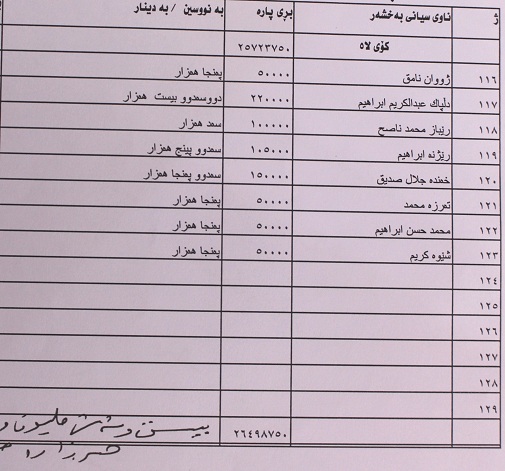 ژ ناوی سیانی بەخشەر بڕی پارە بە نووسین / بە دینار
کۆی لاە ٢٥٧٢٣٧٥٠
١١٦ ژووان نامق ٥٠٠٠٠ پەنجا هەزار
١١٧ دلپاك عبدالكریم ابراهیم ٢٢٠٠٠٠ دووسەدوو بیست هەزار
١١٨ رێباز محمد ناصح ١٠٠٠٠٠ سەد هەزار
١١٩ رێژنە ابراهیم ١٠٥٠٠٠ سەدوو پێنج هەزار
١٢٠ خەندە جلال صدیق ١٥٠٠٠٠ سەدوو پەنجا هەزار
١٢١ تەرزە محمد ٥٠٠٠٠ پەنجا هەزار
١٢٢ محمد حسن ابراهیم ٥٠٠٠٠ پەنجا هەزار
١٢٣ شێوە كریم ٥٠٠٠٠ پەنجا هەزار
١٢٤
١٢٥
١٢٦
١٢٧
١٢٨
١٢٩
٢٦٤٩٨٧٥٠